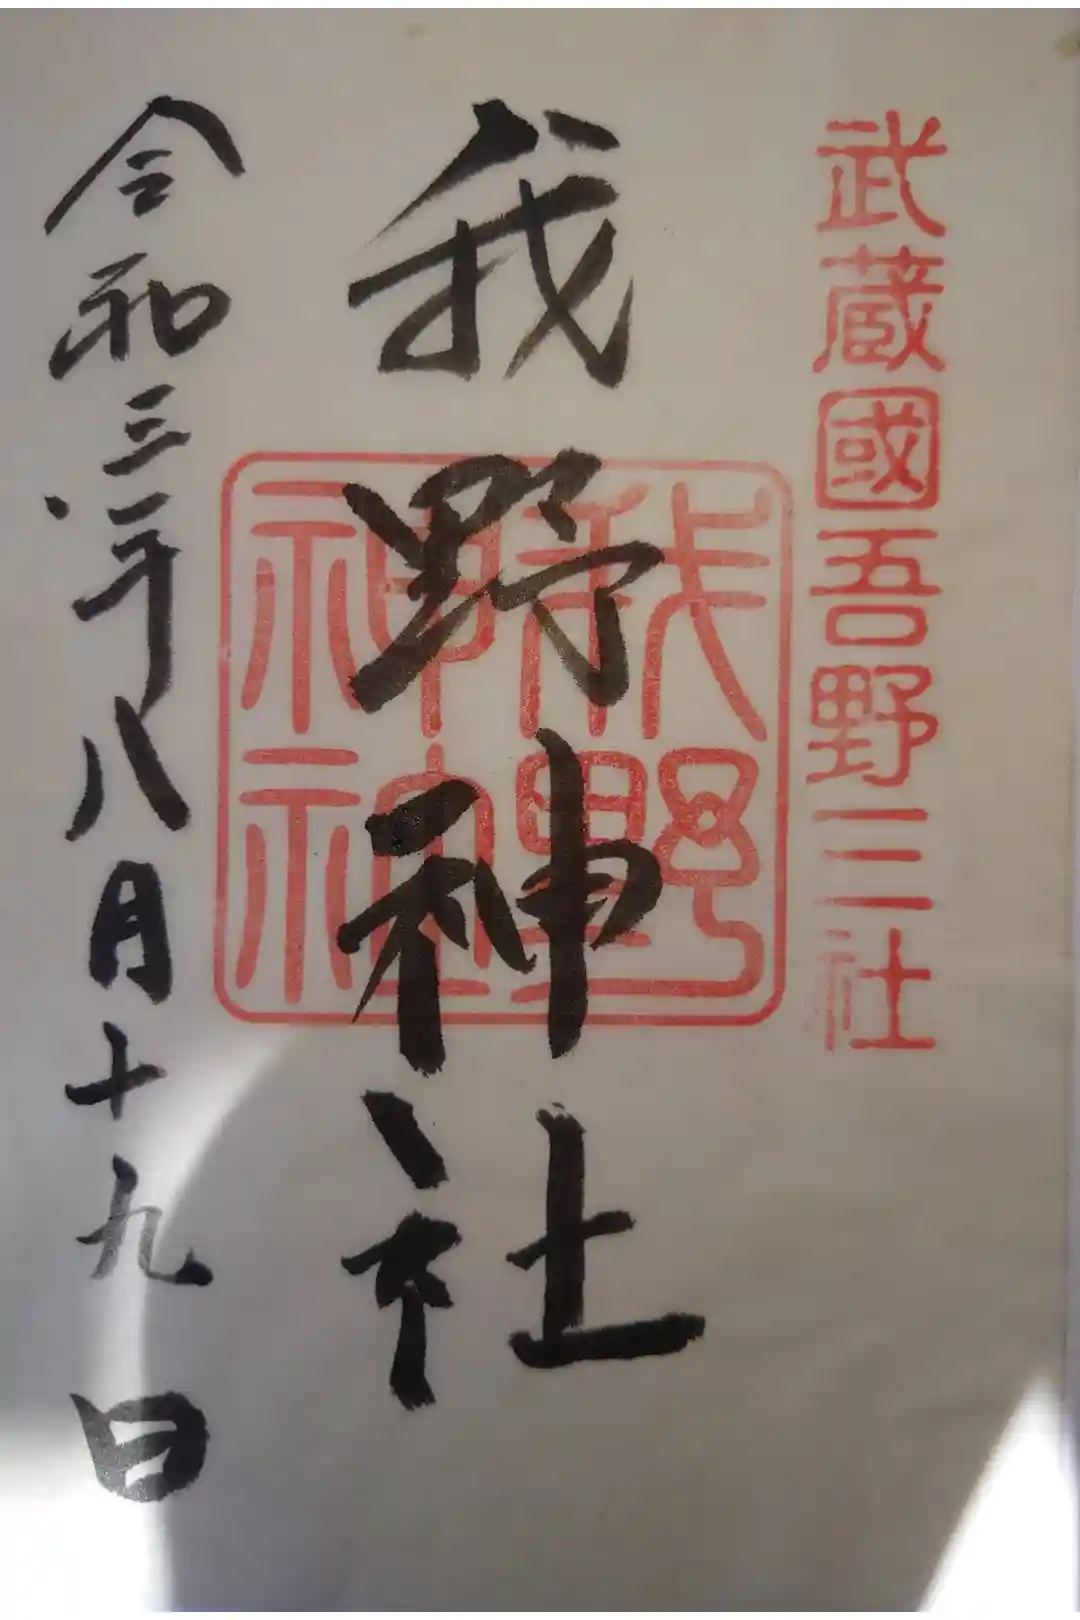 武蔵國吾野三社
我野神社
我野
神社
令和三年八月十九日